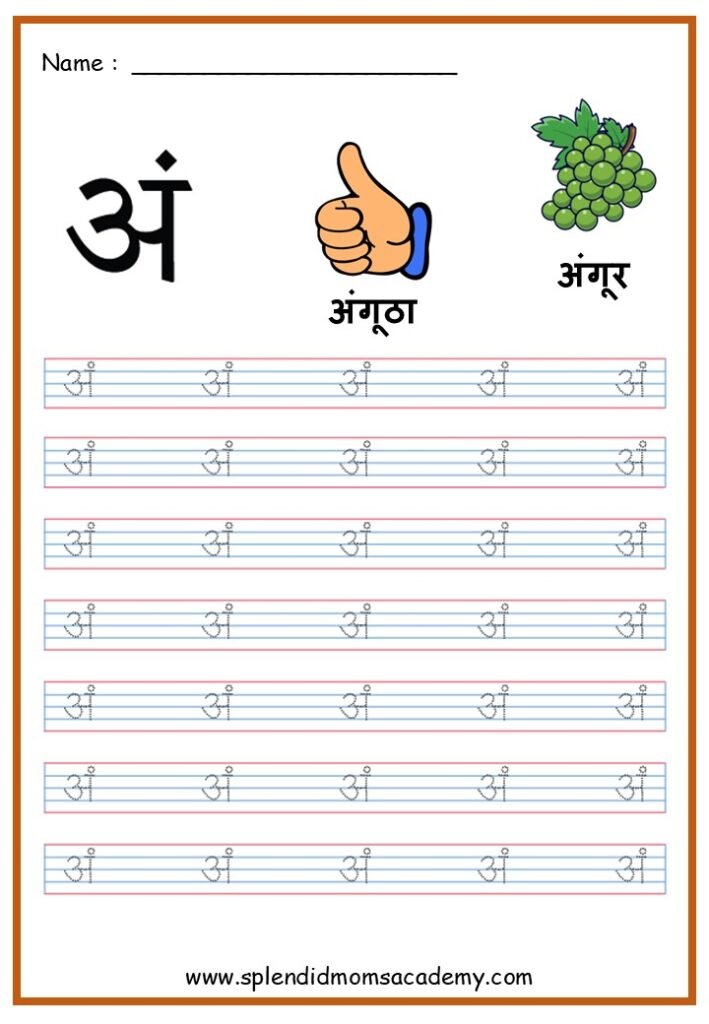 Name : ______________________
अं
अंगूठा
अंगूर
अं अं अं अं अं
अं अं अं अं अं
अं अं अं अं अं
अं अं अं अं अं
अं अं अं अं अं
अं अं अं अं अं
अं अं अं अं अं
www.splendidmomsacademy.com